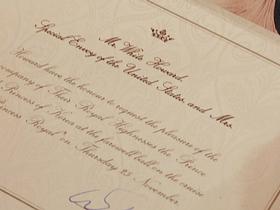 Mr. White Howard,
Special Envoy of the United States, and Mrs.
Howard have the honour to request the pleasure of the
company of Their Royal Highnesses the Prince
Princess of Korea at the farewell ball on the cruise
Princess Royal" on Thursday 25 November.